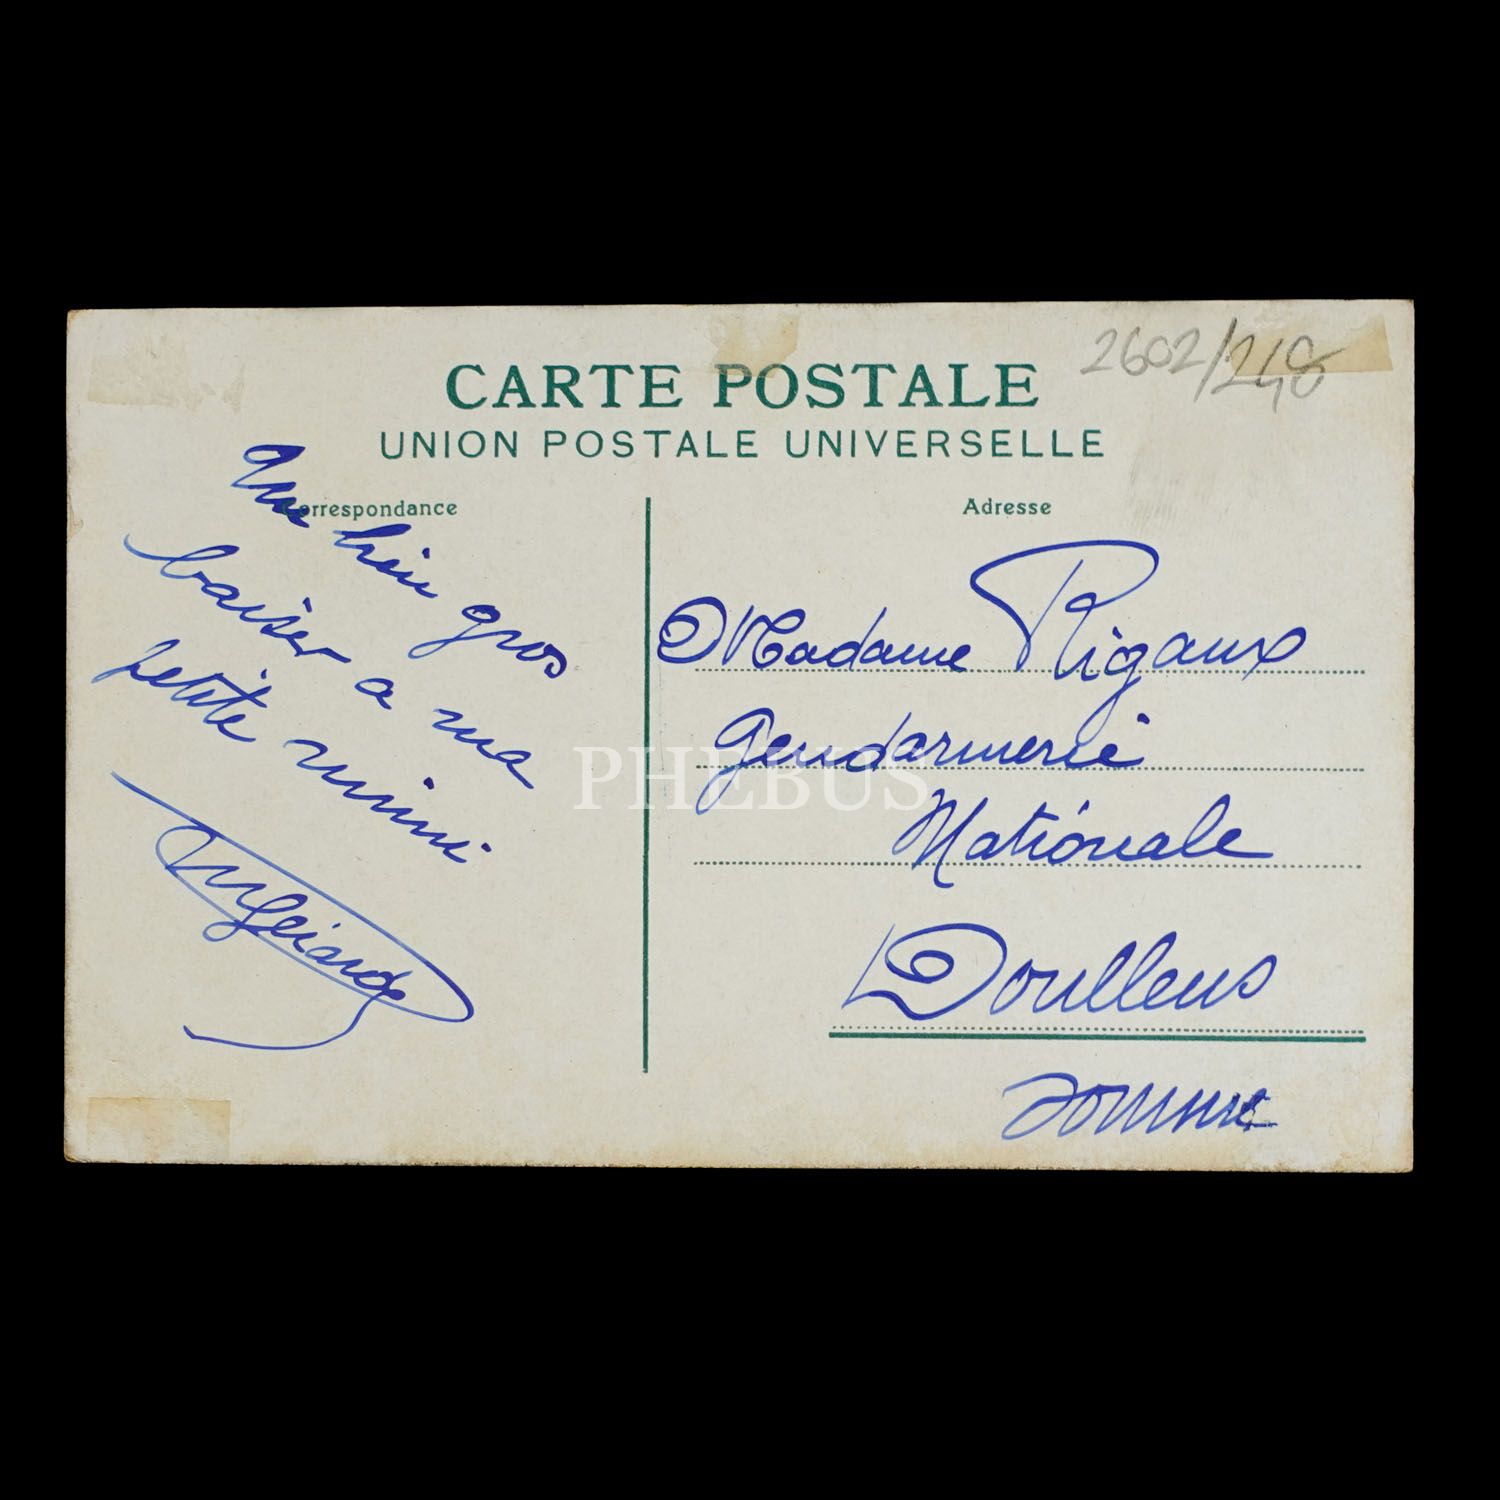 2602/248
CARTE POSTALE
UNION POSTALE UNIVERSELLE
Correspondance
Adresse
Un bien gros
baiser a ma
petite mimi
Madame Rigaux
Gendarmerie
Nationale
Doullens
Somme
PHEBUS